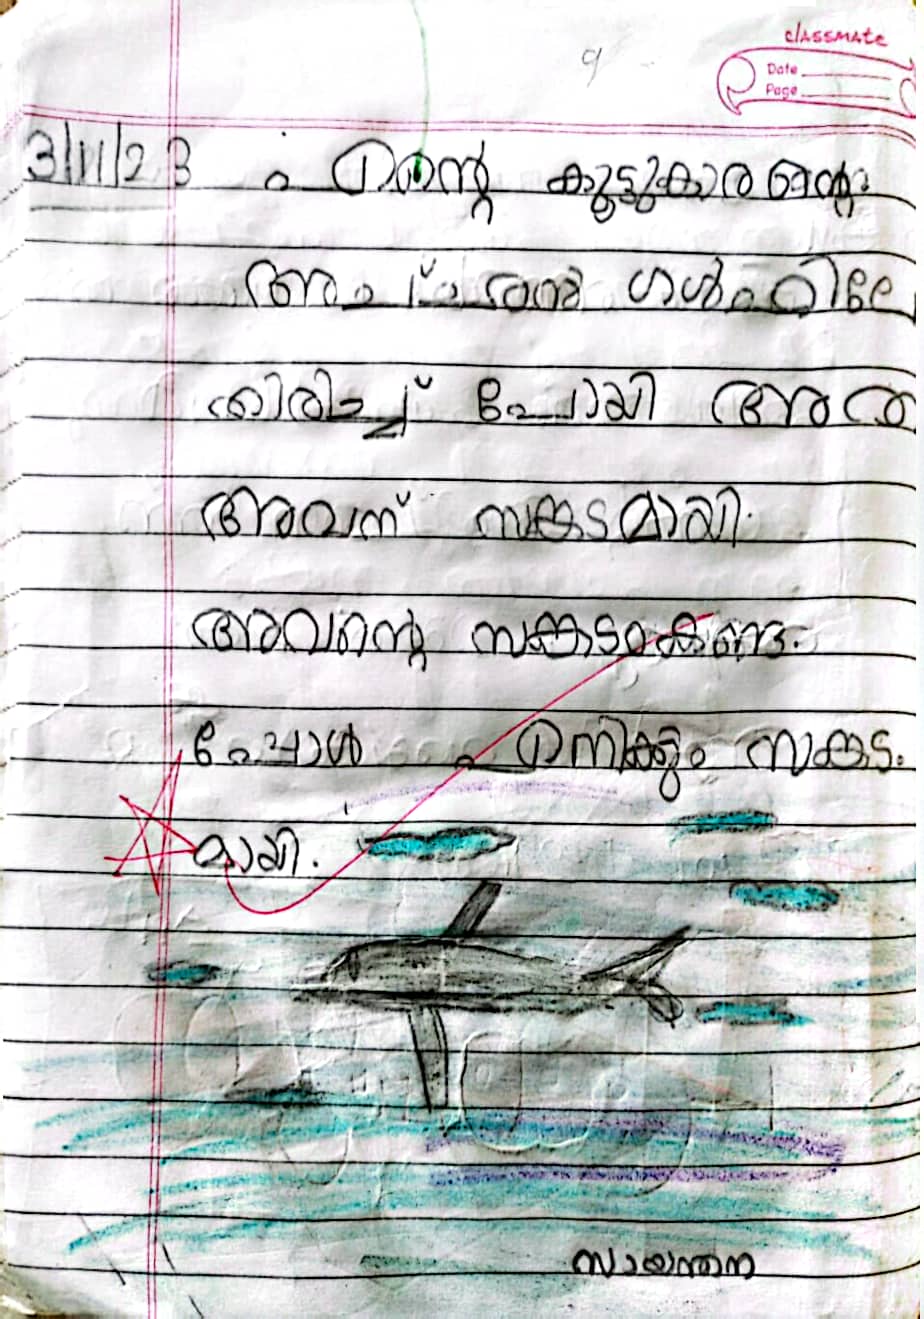 classmate
Date
Page
9
3/11/23 എന്റെ കൂട്ടുകാരന്റെ
അച്ഛൻ ഗൾഫിലേ
തിരിച്ച് പോയി അത
അവന് സങ്കടമായി.
അവന്റെ സങ്കടംകണ്ട
പ്പോൾ എനിക്കും സങ്കട
മായി.
സായന്തന